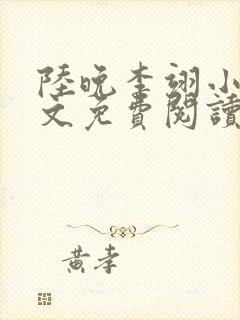 陸晚李翊小
文免費閱讀
黃李